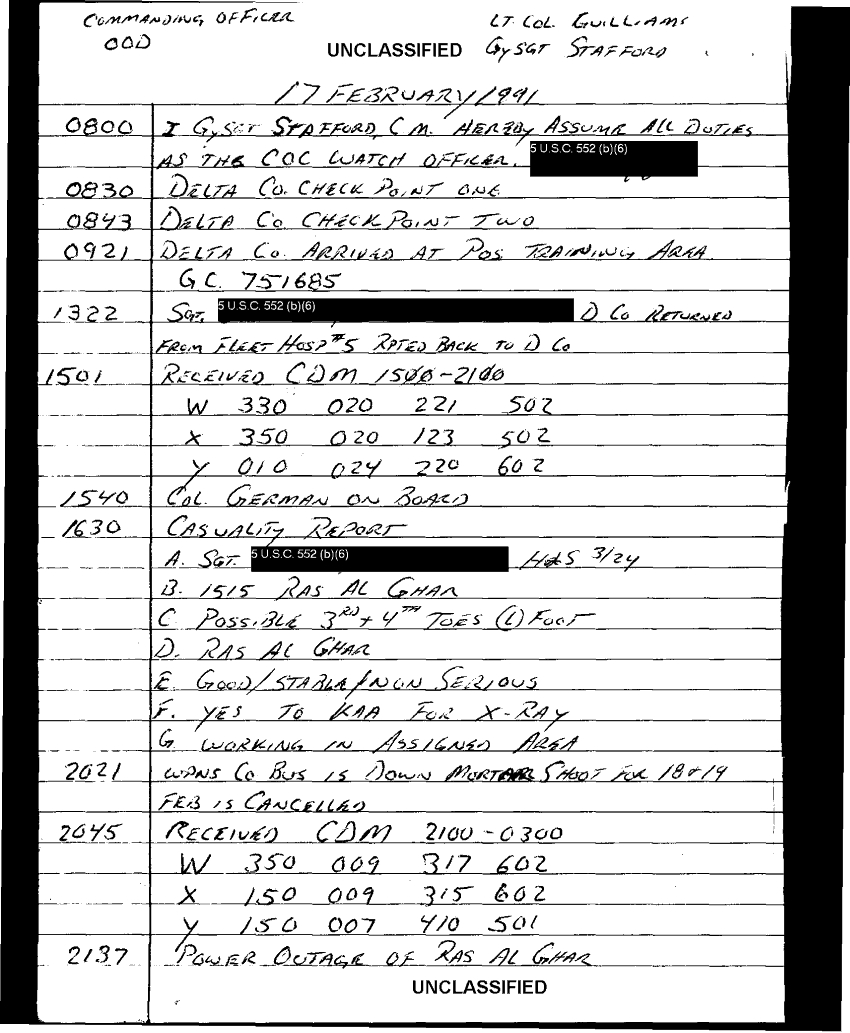 COMMANDING OFFICER LT. COL. GUILLIAMS
OOD UNCLASSIFIED GySGT STAFFORD
17 FEBRUARY 1991
0800 I GySGT STAFFORD, C M. HEREBY ASSUME ALL DUTIES
AS THE COC WATCH OFFICER. 5 U.S.C. 552 (b)(6)
0830 DELTA CO. CHECK POINT ONE
0843 DELTA CO CHECK POINT TWO
0921 DELTA CO. ARRIVED AT POS TRAINING AREA.
G C. 751685
1322 SGT, 5 U.S.C. 552 (b)(6) D CO RETURNED
FROM FLEET HOSP #5 RPTED BACK TO D CO
1501 RECEIVED CDM 1500-2100
W 330 020 221 502
X 350 020 123 502
Y 010 024 220 602
1540 COL. GERMAN ON BOARD
1630 CASUALITY REPORT
A. SGT. 5 U.S.C. 552 (b)(6) H&S 3/24
B. 1515 RAS AL GHAR
C. POSSIBLE 3RD + 4TH TOES (L) FOOT
D. RAS AL GHAR
E. GOOD/STABLE/NON SERIOUS
F. YES TO KAA FOR X-RAY
G. WORKING IN ASSIGNED AREA
2021 WPNS CO BUS IS DOWN MORTAR SHOOT FOR 18+19
FEB IS CANCELLED
2045 RECEIVED CDM 2100-0300
W 350 009 317 602
X 150 009 315 602
Y 150 007 410 501
2137 POWER OUTAGE OF RAS AL GHAR
UNCLASSIFIED